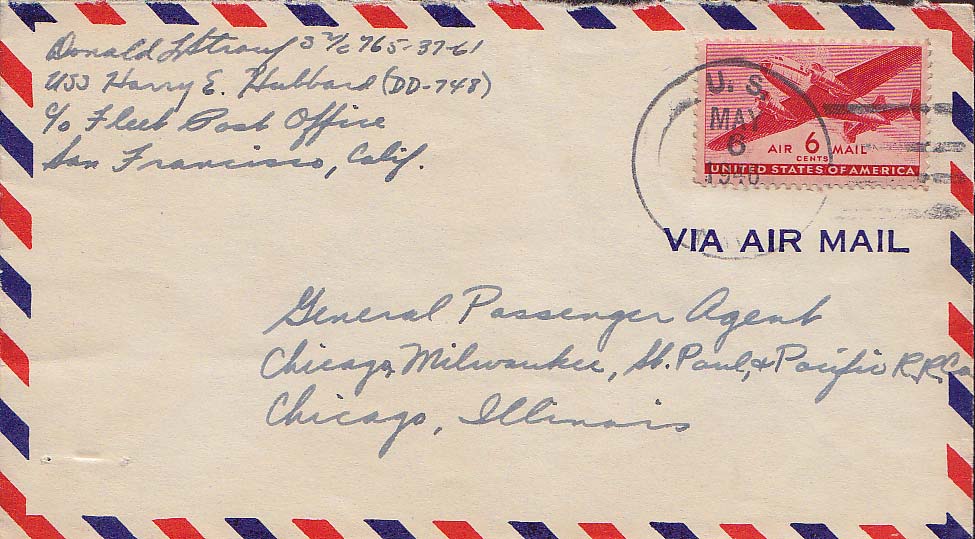 Donald L Strouf S 2/c 765-37-61
USS Harry E. Hubbard (DD-748)
c/o Fleet Post Office
San Francisco, Calif.
U. S.
MAY
6
1946
AIR 6 MAIL
CENTS
UNITED STATES OF AMERICA
VIA AIR MAIL
General Passenger Agent
Chicago, Milwaukee, St. Paul, & Pacific R.R. Co
Chicago, Illinois